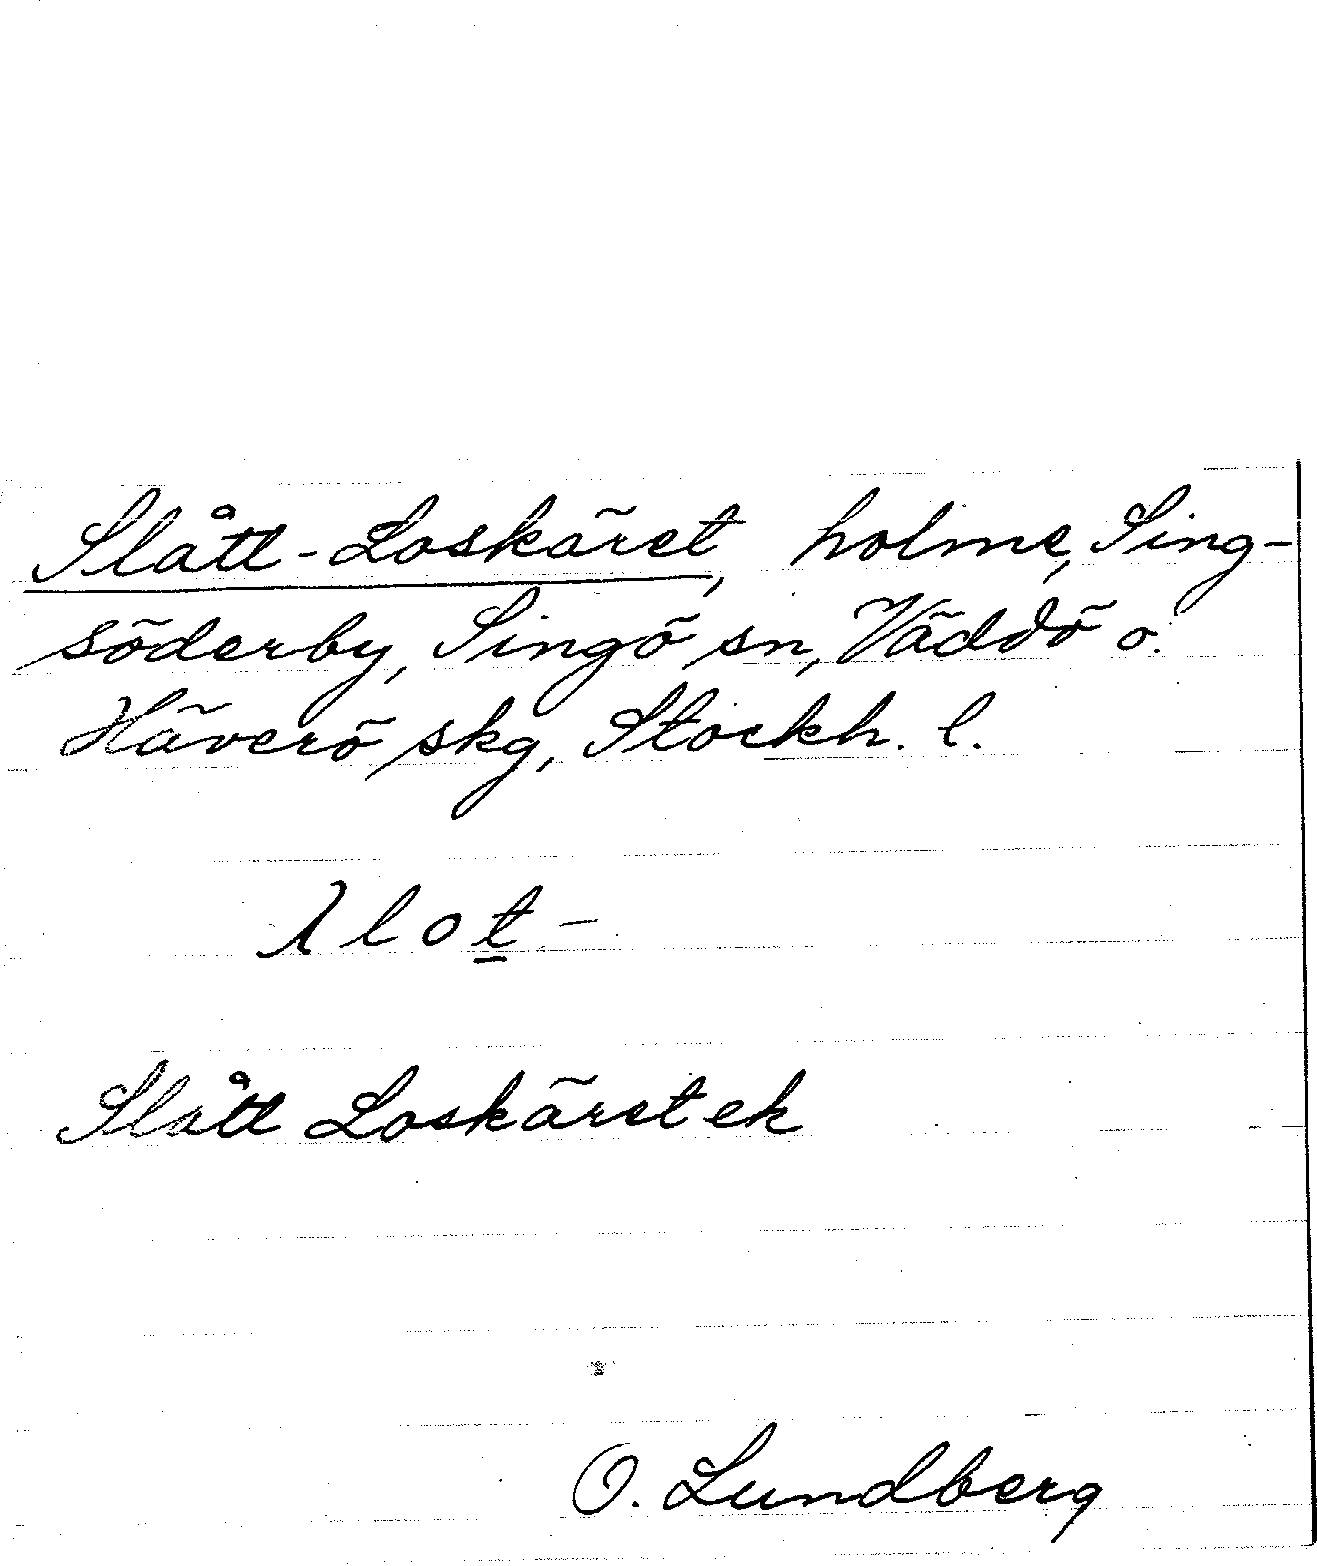 Slått-Loskäret, holme, Sing-
söderby, Singö sn, Väddö o.
Häverö skg, Stockh. l.
λlot-
Slått Loskäret ek
O. Lundberg